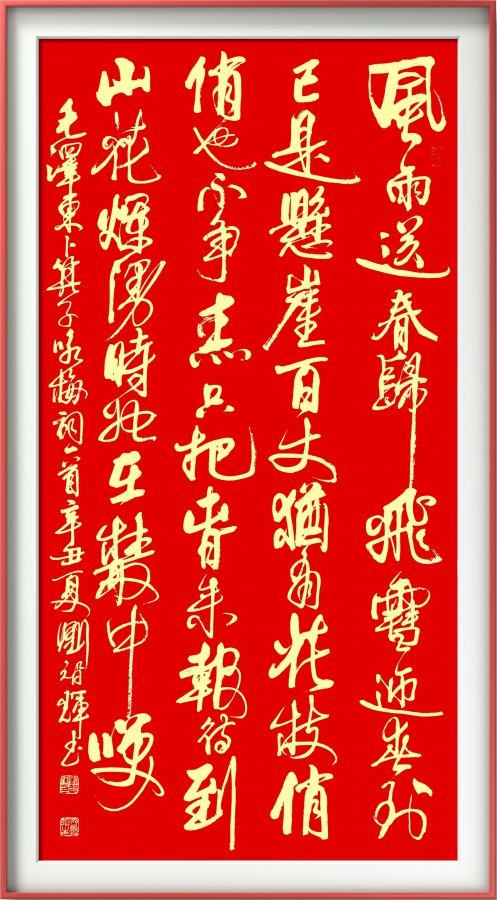 風雨送春歸飛雪迎春到
已是懸崖百丈猶有花枝俏
俏也不争春只把春来報待到
山花爛漫時她在叢中笑
毛澤東卜算子咏梅詞一首辛丑夏劉智輝书